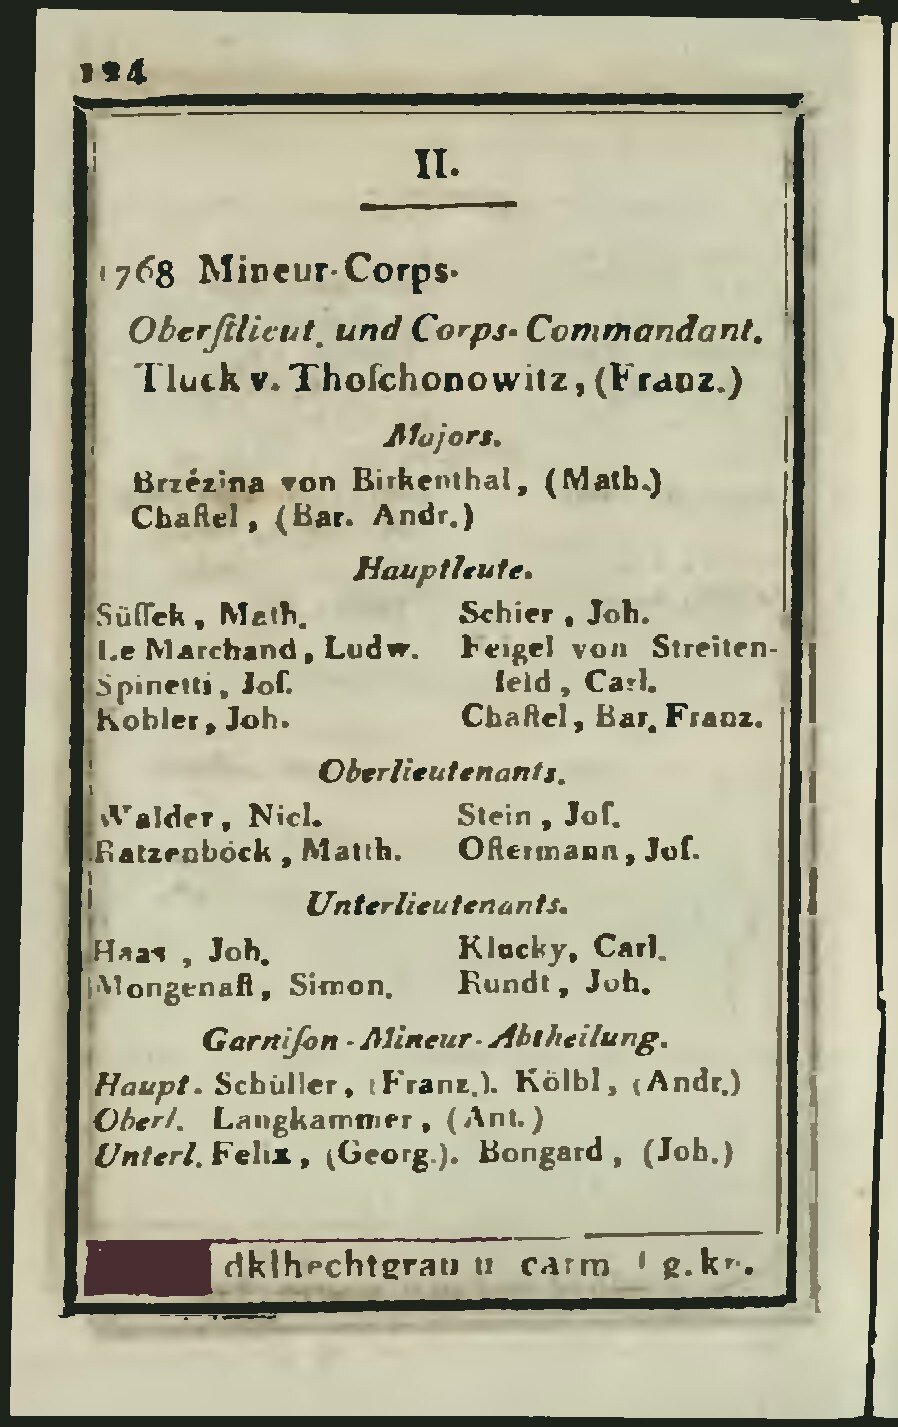 124
II.
1768 Mineur-Corps.
Oberſtlieut. und Corps-Commandant.
Tluck v. Thoſchonowitz, (Franz.)
Majors.
Brzézina von Birkenthal, (Math.)
Chaſtel, (Bar. Andr.)
Hauptleute.
Süſſek, Math.
Le Marchand, Ludw.
Spinetti, Joſ.
Kobler, Joh.
Schier, Joh.
Feigel von Streiten-
feld, Carl.
Chaſtel, Bar. Franz.
Oberlieutenants.
Walder, Nicl.
Ratzenböck, Matth.
Stein, Joſ.
Oſtermann, Joſ.
Unterlieutenants.
Haas, Joh.
Mongenaſt, Simon.
Klucky, Carl.
Rundt, Joh.
Garniſon-Mineur-Abtheilung.
Haupt. Schüller, (Franz.). Kölbl, (Andr.)
Oberl. Langkammer, (Ant.)
Unterl. Felix, (Georg.). Bongard, (Joh.)
dklhechtgrau u carm g.kn.